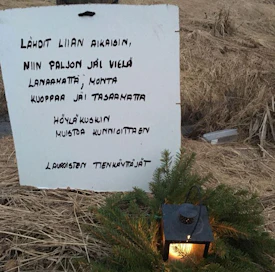 LÄHDIT LIIAN AIKAISIN,
NIIN PALJON JÄI VIELÄ
LANAAMATTA, MONTA
KUOPPAA JÄI TASAAMATTA
HÖYLÄKUSKIN
MUISTOA KUNNIOITTAEN
LAUROISTEN TIENKÄYTTÄJÄT